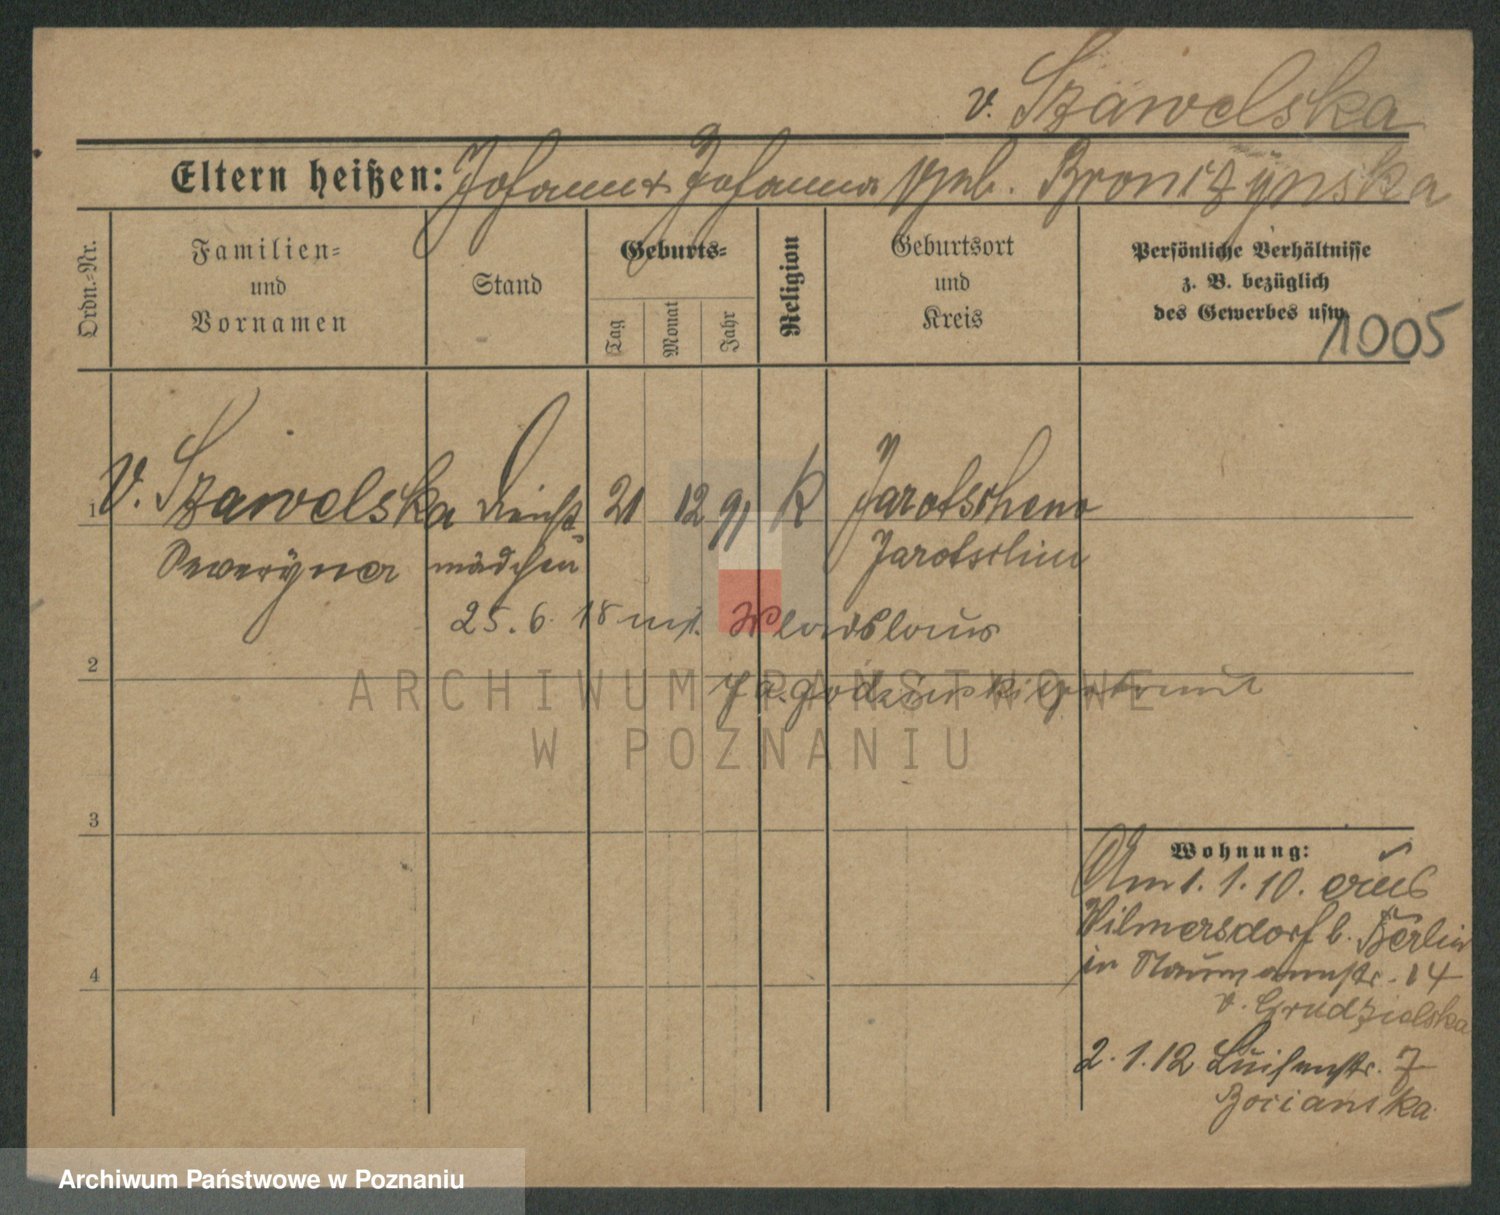 v. Szawelska
Eltern heißen: Johann + Johanna geb. Broniszynska
Ordn.-Nr.
Familien-
und
Vornamen
Stand
Geburts-
Tag
Monat
Jahr
Religion
Geburtsort
und
Kreis
Persönliche Verhältnisse
z. B. bezüglich
des Gewerbes usw.
1005
1 v. Szawelska Dienst- 21 12 91 K Jarotschewo
Seweryna mädchen Jarotschin
25. 6. 18 mit Wladslaus
2
Jagodzinski getraut
3
4
Wohnung:
Am 1. 1. 10. aus
Wilmersdorf b. Berlin
in Naumannstr. 14
v. Grudzielska
2. 1. 12 Luisenstr. 7
Bocianska
ARCHIWUM PAŃSTWOWE
W POZNANIU
Archiwum Państwowe w Poznaniu